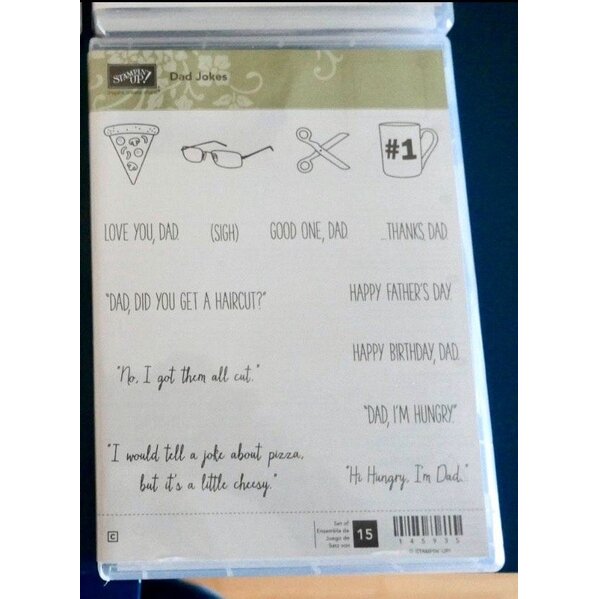 STAMPIN' UP!
Dad Jokes
#1
LOVE YOU, DAD.
(SIGH)
GOOD ONE, DAD.
...THANKS, DAD.
"DAD, DID YOU GET A HAIRCUT?"
HAPPY FATHER'S DAY.
HAPPY BIRTHDAY, DAD.
"No, I got them all cut."
"DAD, I'M HUNGRY."
"I would tell a joke about pizza,
but it's a little cheesy."
"Hi Hungry, I'm Dad."
C
Set of
Ensemble de
Juego de
Satz von
15
145935
© STAMPIN' UP!